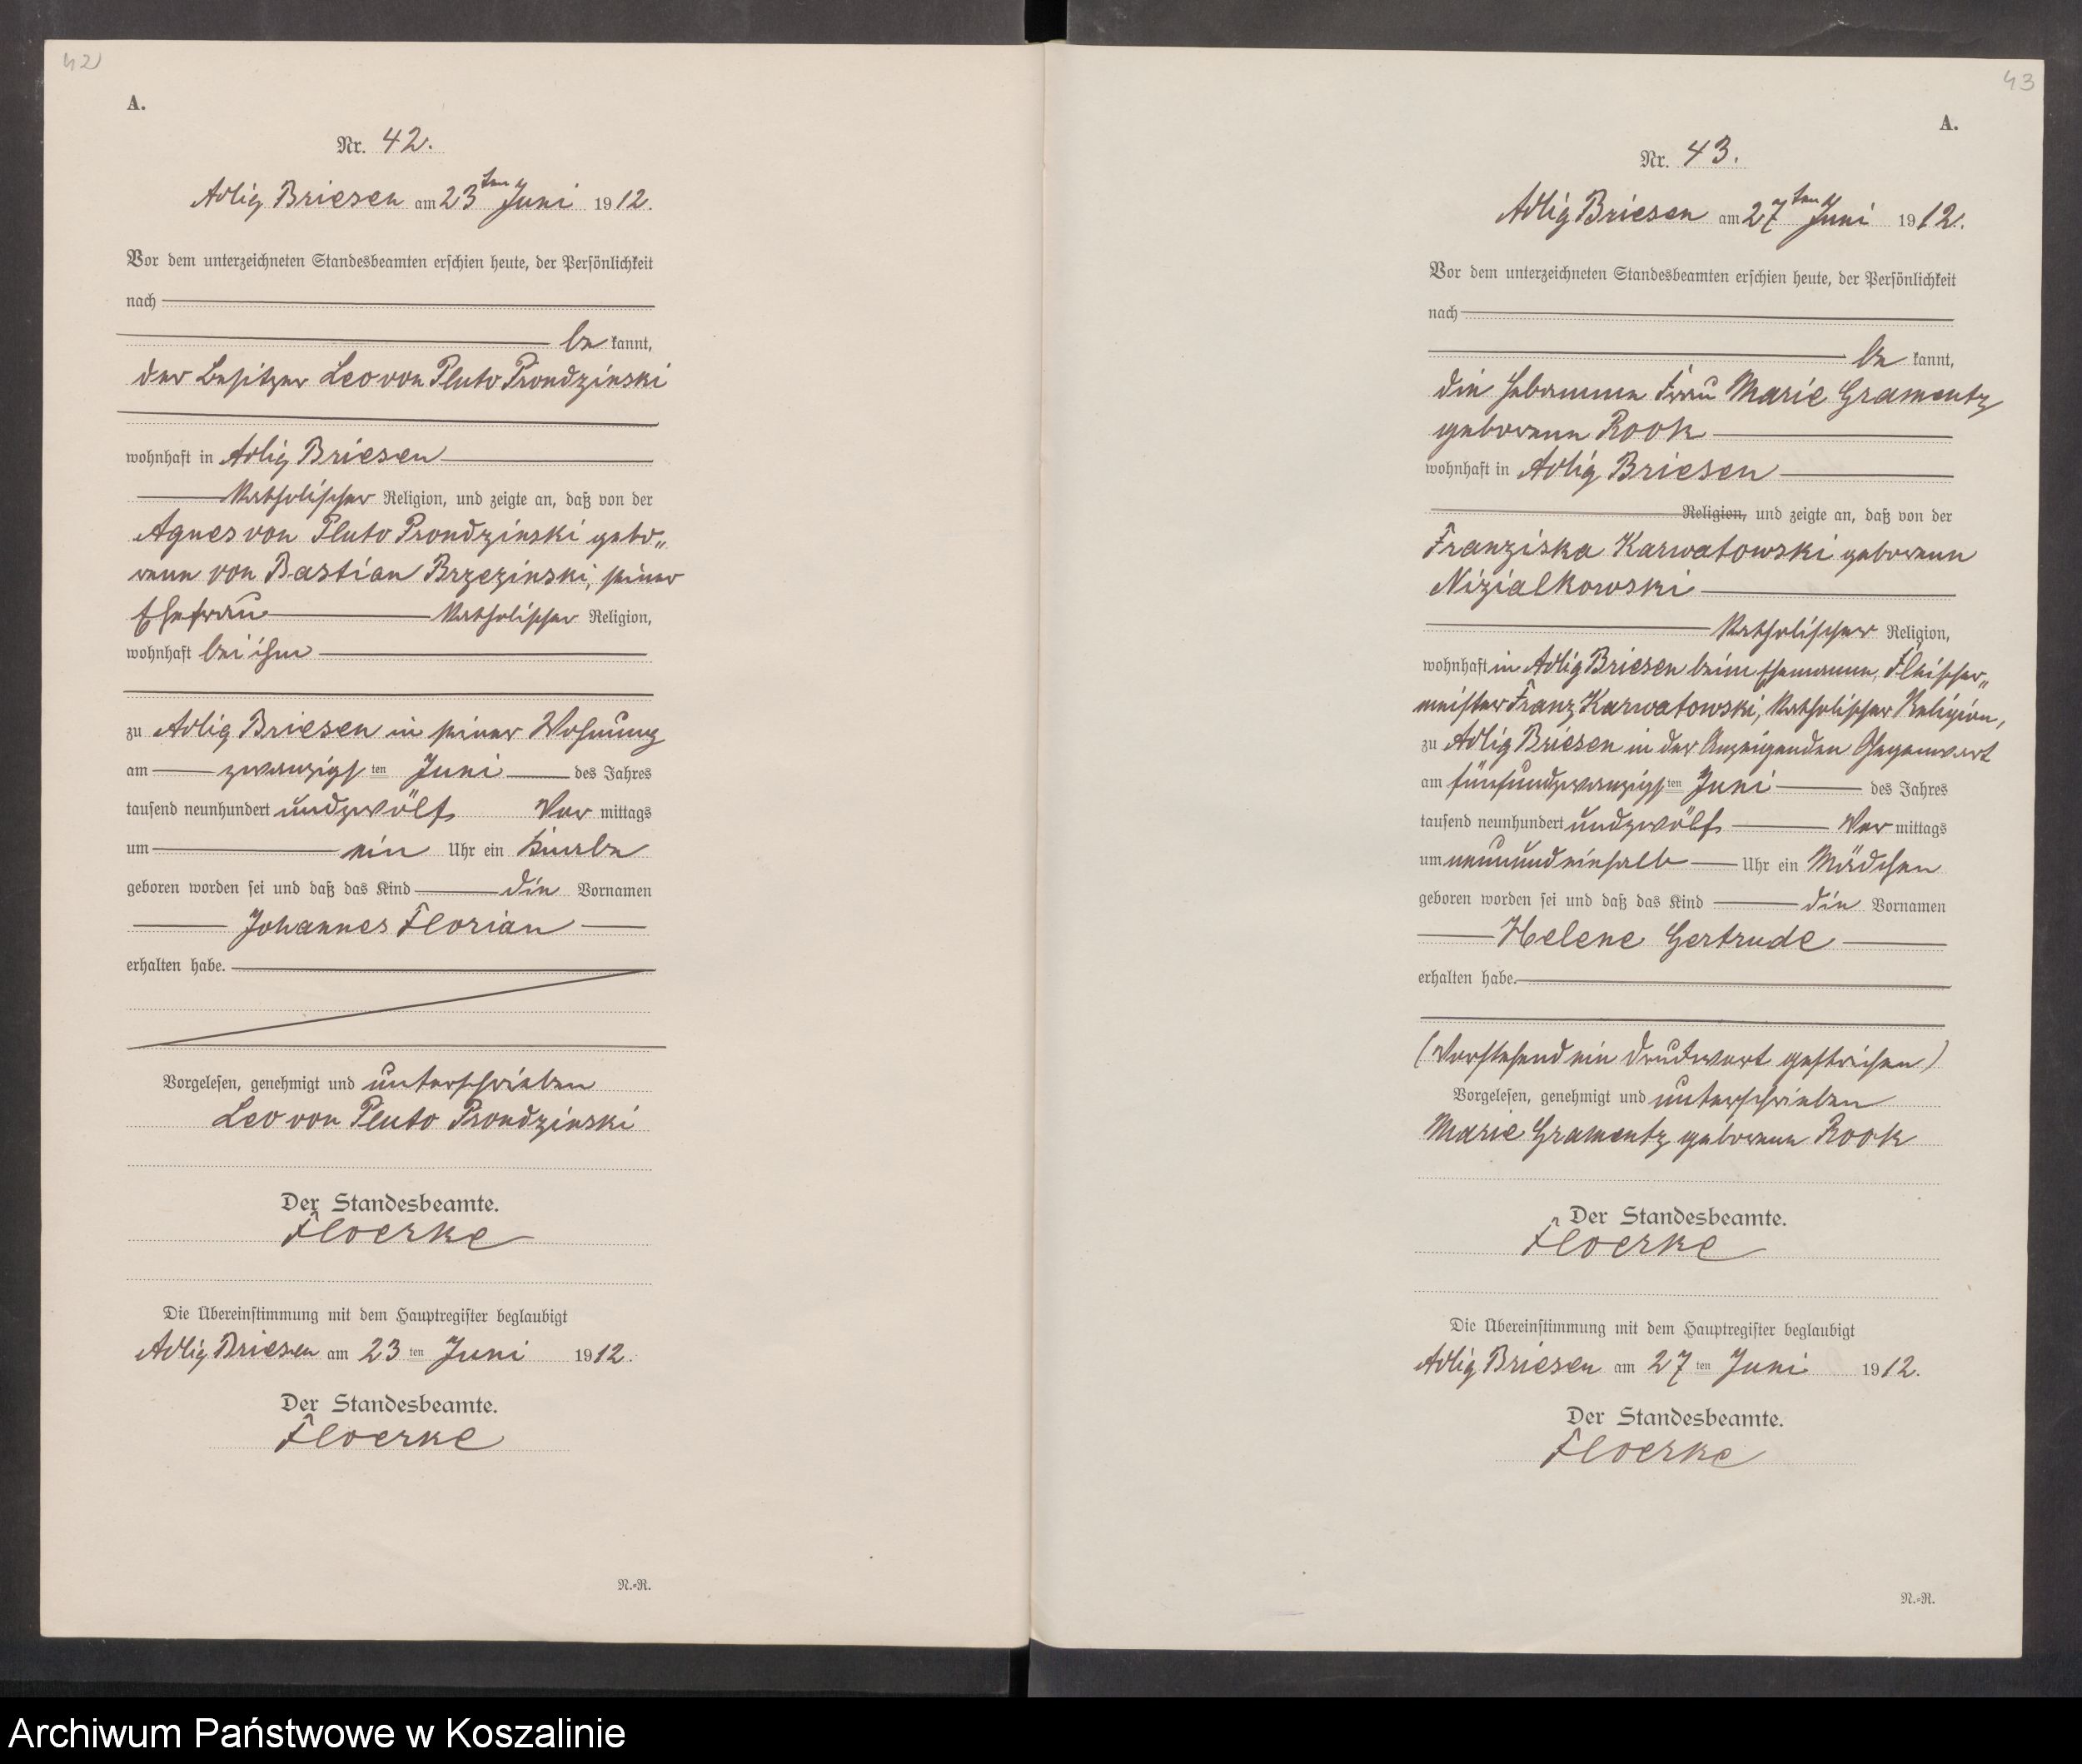 42
A.
Nr. 42.
Adlig Briesen am 23ten Juni 1912.
Vor dem unterzeichneten Standesbeamten erschien heute, der Persönlichkeit
nach
be kannt,
der Besitzer Leo von Pluto Prondzinski
wohnhaft in Adlig Briesen
katholischer Religion, und zeigte an, daß von der
Agnes von Pluto Prondzinski gebo„
rene von Bastian Brzezinski, seiner
Ehefrau katholischer Religion,
wohnhaft bei ihm
zu Adlig Briesen in seiner Wohnung
am zwanzigsten Juni des Jahres
tausend neunhundert undzwölf Vor mittags
um ein Uhr ein Knabe
geboren worden sei und daß das Kind die Vornamen
Johannes Florian
erhalten habe.
Vorgelesen, genehmigt und unterschrieben
Leo von Pluto Prondzinski
Der Standesbeamte.
Floerke
Die Übereinstimmung mit dem Hauptregister beglaubigt
Adlig Briesen am 23 ten Juni 1912.
Der Standesbeamte.
Floerke
N.=R.
43
A.
Nr. 43.
Adlig Briesen am 27ten Juni 1912.
Vor dem unterzeichneten Standesbeamten erschien heute, der Persönlichkeit
nach
be kannt,
die Hebamme Frau Marie Gramentz
geborene Rook
wohnhaft in Adlig Briesen
Religion, und zeigte an, daß von der
Franziska Karwatowski geborene
Nizialkowski
katholischer Religion,
wohnhaft in Adlig Briesen beim Ehemanne, Fleischer„
meister Franz Karwatowski, katholischer Religion,
zu Adlig Briesen in der Anzeigenden Gegenwart
am fünfundzwanzigsten Juni des Jahres
tausend neunhundert undzwölf Vor mittags
um neunundeinhalb Uhr ein Mädchen
geboren worden sei und daß das Kind die Vornamen
Helene Gertrude
erhalten habe.
(Vorstehend ein Druckwort gestrichen)
Vorgelesen, genehmigt und unterschrieben
Marie Gramentz geborene Rook
Der Standesbeamte.
Floerke
Die Übereinstimmung mit dem Hauptregister beglaubigt
Adlig Briesen am 27 ten Juni 1912.
Der Standesbeamte.
Floerke
N.=R.
Archiwum Państwowe w Koszalinie